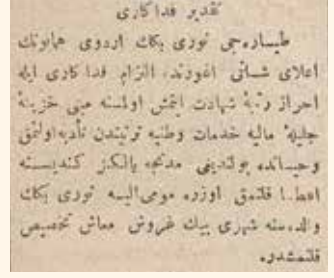 تقدیر فداکاری
طیاره‌جی نوری بكك اردوی همایونك
اعلای شانی اغورنده التزام فداکاری ایله
احراز رتبهٔ شهادت ایتمش اولمسنه مبنی خزینهٔ
جلیلهٔ مالیه خدمات وطنیه ترتیبندن تأدیه اولنمق
وحیاتده بولندیغی مدتجه یالكز كندیسنه
اعطا قلنمق اوزره مومی‌الیه نوری بكك
والده‌سنه شهری بیك غروش معاش تخصیص
قلنمشدر.